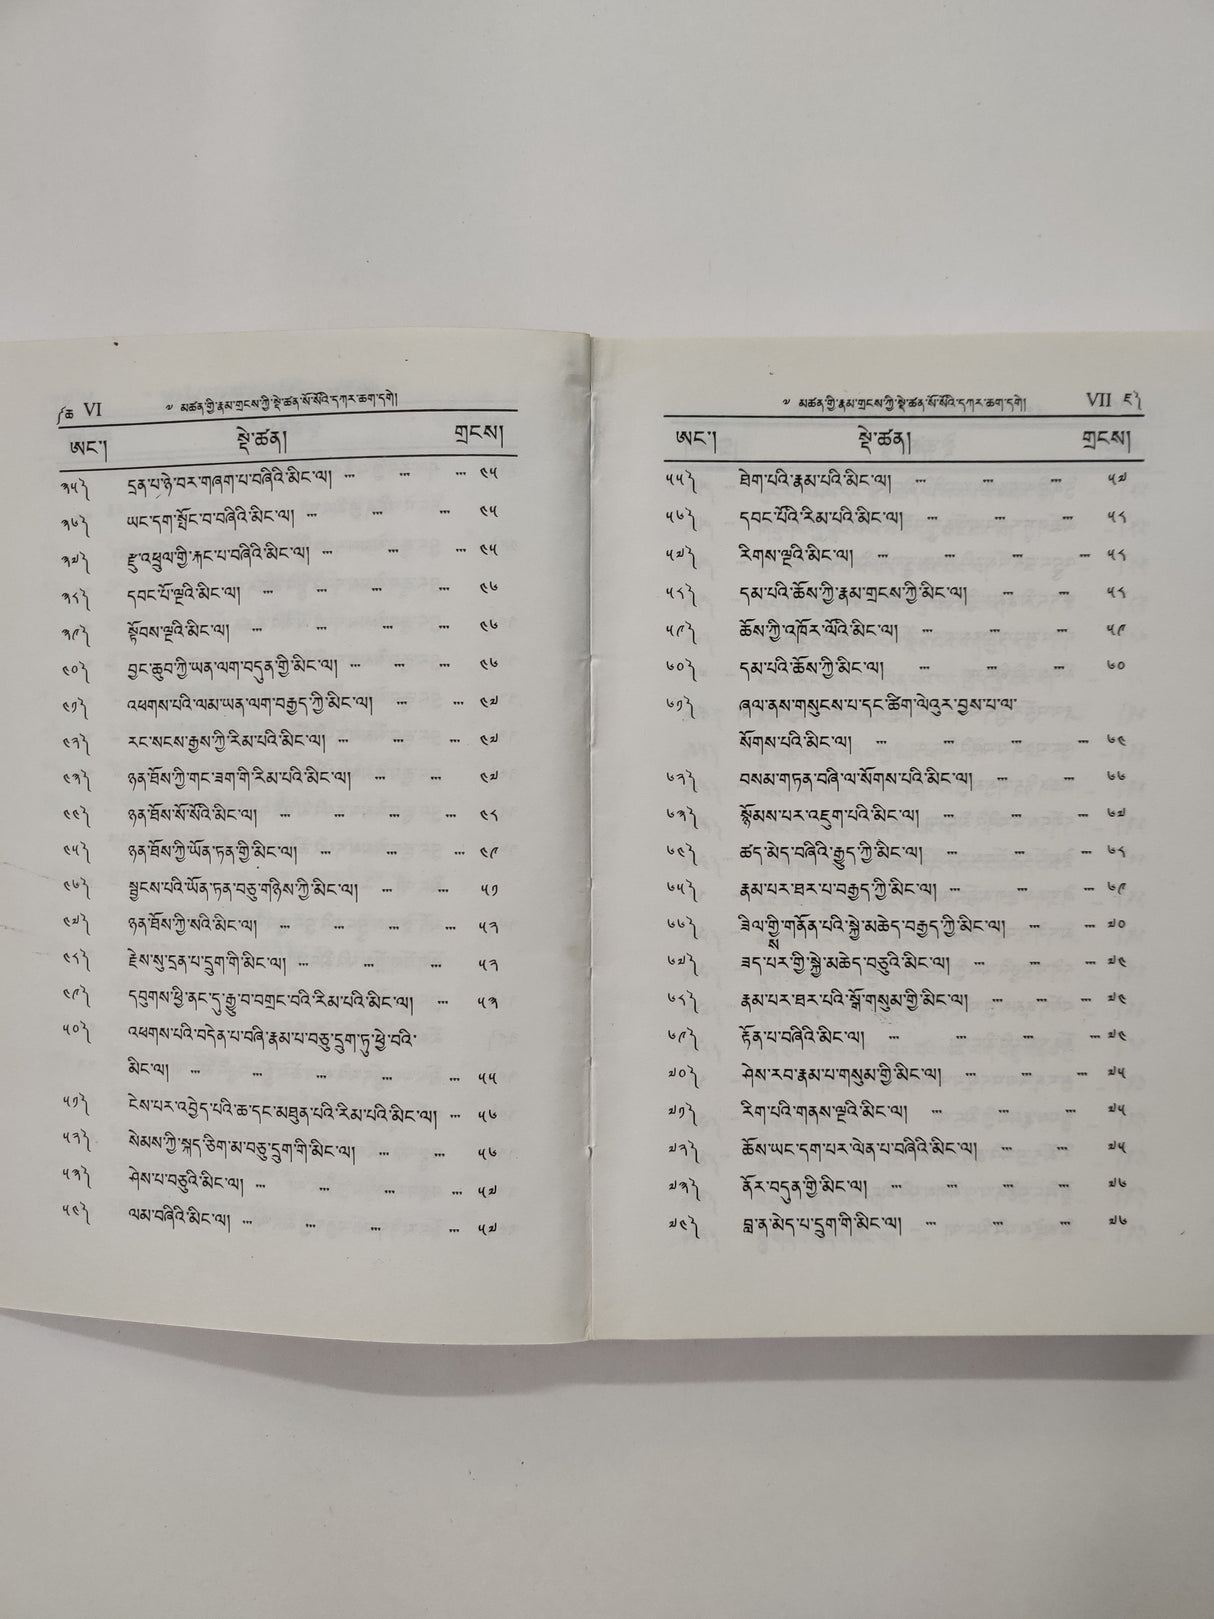 ༼ཆ VI ༧ མཚན་གྱི་རྣམ་གྲངས་ཀྱི་སྡེ་ཚན་སོ་སོའི་དཀར་ཆག་དགེ།
ཨང་། སྡེ་ཚན། གྲངས།
༣༥༽ དྲན་པ་ཉེ་བར་གཞག་པ་བཞིའི་མིང་ལ། ... ... ... ༤༥
༣༦༽ ཡང་དག་སྤོང་བ་བཞིའི་མིང་ལ། ... ... ... ༤༥
༣༧༽ རྫུ་འཕྲུལ་གྱི་རྐང་པ་བཞིའི་མིང་ལ། ... ... ... ༤༥
༣༨༽ དབང་པོ་ལྔའི་མིང་ལ། ... ... ... ... ༤༦
༣༩༽ སྟོབས་ལྔའི་མིང་ལ། ... ... ... ... ༤༦
༤༠༽ བྱང་ཆུབ་ཀྱི་ཡན་ལག་བདུན་གྱི་མིང་ལ། ... ... ... ༤༦
༤༡༽ འཕགས་པའི་ལམ་ཡན་ལག་བརྒྱད་ཀྱི་མིང་ལ། ... ... ༤༧
༤༢༽ རང་སངས་རྒྱས་ཀྱི་རིམ་པའི་མིང་ལ། ... ... ... ༤༧
༤༣༽ ཉན་ཐོས་ཀྱི་གང་ཟག་གི་རིམ་པའི་མིང་ལ། ... ... ༤༧
༤༤༽ ཉན་ཐོས་སོ་སོའི་མིང་ལ། ... ... ... ... ༤༨
༤༥༽ ཉན་ཐོས་ཀྱི་ཡོན་ཏན་གྱི་མིང་ལ། ... ... ... ༤༩
༤༦༽ སྦྱངས་པའི་ཡོན་ཏན་བཅུ་གཉིས་ཀྱི་མིང་ལ། ... ... ༥༡
༤༧༽ ཉན་ཐོས་ཀྱི་སའི་མིང་ལ། ... ... ... ... ༥༢
༤༨༽ རྗེས་སུ་དྲན་པ་དྲུག་གི་མིང་ལ། ... ... ... ༥༢
༤༩༽ དབུགས་ཕྱི་ནང་དུ་རྒྱུ་བ་བགྲང་བའི་རིམ་པའི་མིང་ལ། ... ༥༣
༥༠༽ འཕགས་པའི་བདེན་པ་བཞི་རྣམ་པ་བཅུ་དྲུག་ཏུ་ཕྱེ་བའི་
མིང་ལ། ... ... ... ... ... ༥༥
༥༡༽ ངེས་པར་འབྱེད་པའི་ཆ་དང་མཐུན་པའི་རིམ་པའི་མིང་ལ། ... ༥༦
༥༢༽ སེམས་ཀྱི་སྐད་ཅིག་མ་བཅུ་དྲུག་གི་མིང་ལ། ... ... ༥༦
༥༣༽ ཤེས་པ་བཅུའི་མིང་ལ། ... ... ... ... ༥༧
༥༤༽ ལམ་བཞིའི་མིང་ལ། ... ... ... ... ༥༧
༧ མཚན་གྱི་རྣམ་གྲངས་ཀྱི་སྡེ་ཚན་སོ་སོའི་དཀར་ཆག་དགེ། VII ཇ༽
ཨང་། སྡེ་ཚན། གྲངས།
༥༥༽ ཐེག་པའི་རྣམ་པའི་མིང་ལ། ... ... ... ༥༧
༥༦༽ དབང་པོའི་རིམ་པའི་མིང་ལ། ... ... ... ༥༨
༥༧༽ རིགས་ལྔའི་མིང་ལ། ... ... ... ... ༥༨
༥༨༽ དམ་པའི་ཆོས་ཀྱི་རྣམ་གྲངས་ཀྱི་མིང་ལ། ... ... ༥༨
༥༩༽ ཆོས་ཀྱི་འཁོར་ལོའི་མིང་ལ། ... ... ... ༥༩
༦༠༽ དམ་པའི་ཆོས་ཀྱི་མིང་ལ། ... ... ... ༦༠
༦༡༽ ཞལ་ནས་གསུངས་པ་དང་ཚིག་ལེའུར་བྱས་པ་ལ་
སོགས་པའི་མིང་ལ། ... ... ... ... ༦༤
༦༢༽ བསམ་གཏན་བཞི་ལ་སོགས་པའི་མིང་ལ། ... ... ༦༦
༦༣༽ སྙོམས་པར་འཇུག་པའི་མིང་ལ། ... ... ... ༦༧
༦༤༽ ཚད་མེད་བཞིའི་རྒྱུད་ཀྱི་མིང་ལ། ... ... ... ༦༨
༦༥༽ རྣམ་པར་ཐར་པ་བརྒྱད་ཀྱི་མིང་ལ། ... ... ... ༦༩
༦༦༽ ཟིལ་གྱིས་གནོན་པའི་སྐྱེ་མཆེད་བརྒྱད་ཀྱི་མིང་ལ། ... ... ༧༠
༦༧༽ ཟད་པར་གྱི་སྐྱེ་མཆེད་བཅུའི་མིང་ལ། ... ... ... ༧༤
༦༨༽ རྣམ་པར་ཐར་པའི་སྒོ་གསུམ་གྱི་མིང་ལ། ... ... ... ༧༤
༦༩༽ རྟོན་པ་བཞིའི་མིང་ལ། ... ... ... ... ༧༤
༧༠༽ ཤེས་རབ་རྣམ་པ་གསུམ་གྱི་མིང་ལ། ... ... ... ༧༥
༧༡༽ རིག་པའི་གནས་ལྔའི་མིང་ལ། ... ... ... ༧༥
༧༢༽ ཆོས་ཡང་དག་པར་ལེན་པ་བཞིའི་མིང་ལ། ... ... ༧༥
༧༣༽ ནོར་བདུན་གྱི་མིང་ལ། ... ... ... ... ༧༦
༧༤༽ བླ་ན་མེད་པ་དྲུག་གི་མིང་ལ། ... ... ... ༧༦